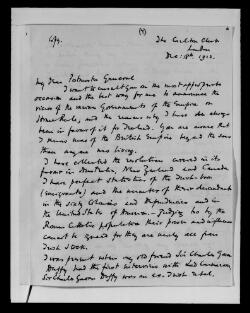 Copy.
(4)
The Carlton Club
London
Dec: 18th 1912.
My Dear Postmaster General
I want to consult you on the most appropriate
occasion and the best way for me to announce the
views of the various Governments of the Empire on
Home Rule, and the reasons why I have also always
been in favor of it for Ireland. You are aware that
I know more of the British Empire beyond the seas
than anyone now living.
I have collected the resolutions carried in its
favor in Australia, New Zealand and Canada
I have perfect statistics of the Irish born
(immigrants) and the number of their descendants
in the sixty Colonies and Dependencies and in
the United States of America. Judging by the
Roman Catholic population their power and influence
cannot be ignored for they are nearly all from
Irish Stock.
I was present when my old friend Sir Charles Gavan
Duffy had the first interview with Lord Carnarvon,
Sir Charles Gavan Duffy was an ex-Irish rebel.